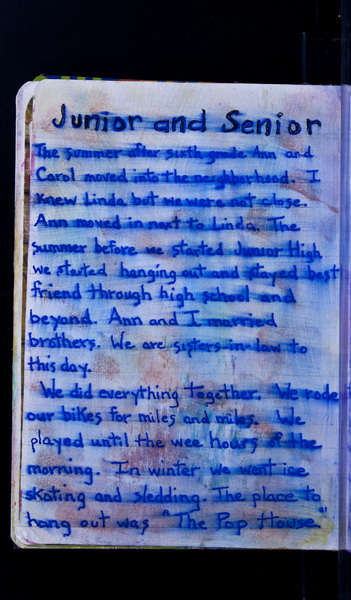 Junior and Senior
The summer after sixth grade Ann and
Carol moved into the neighborhood. I
knew Linda but we were not close.
Ann moved in next to Linda. The
summer before we started Junior High
we started hanging out and stayed best
friend through high school and
beyond. Ann and I married
brothers. We are sisters-in-law to
this day.
We did everything together. We rode
our bikes for miles and miles. We
played until the wee hours of the
morning. In winter we went ice
skating and sledding. The place to
hang out was "The Pop House."